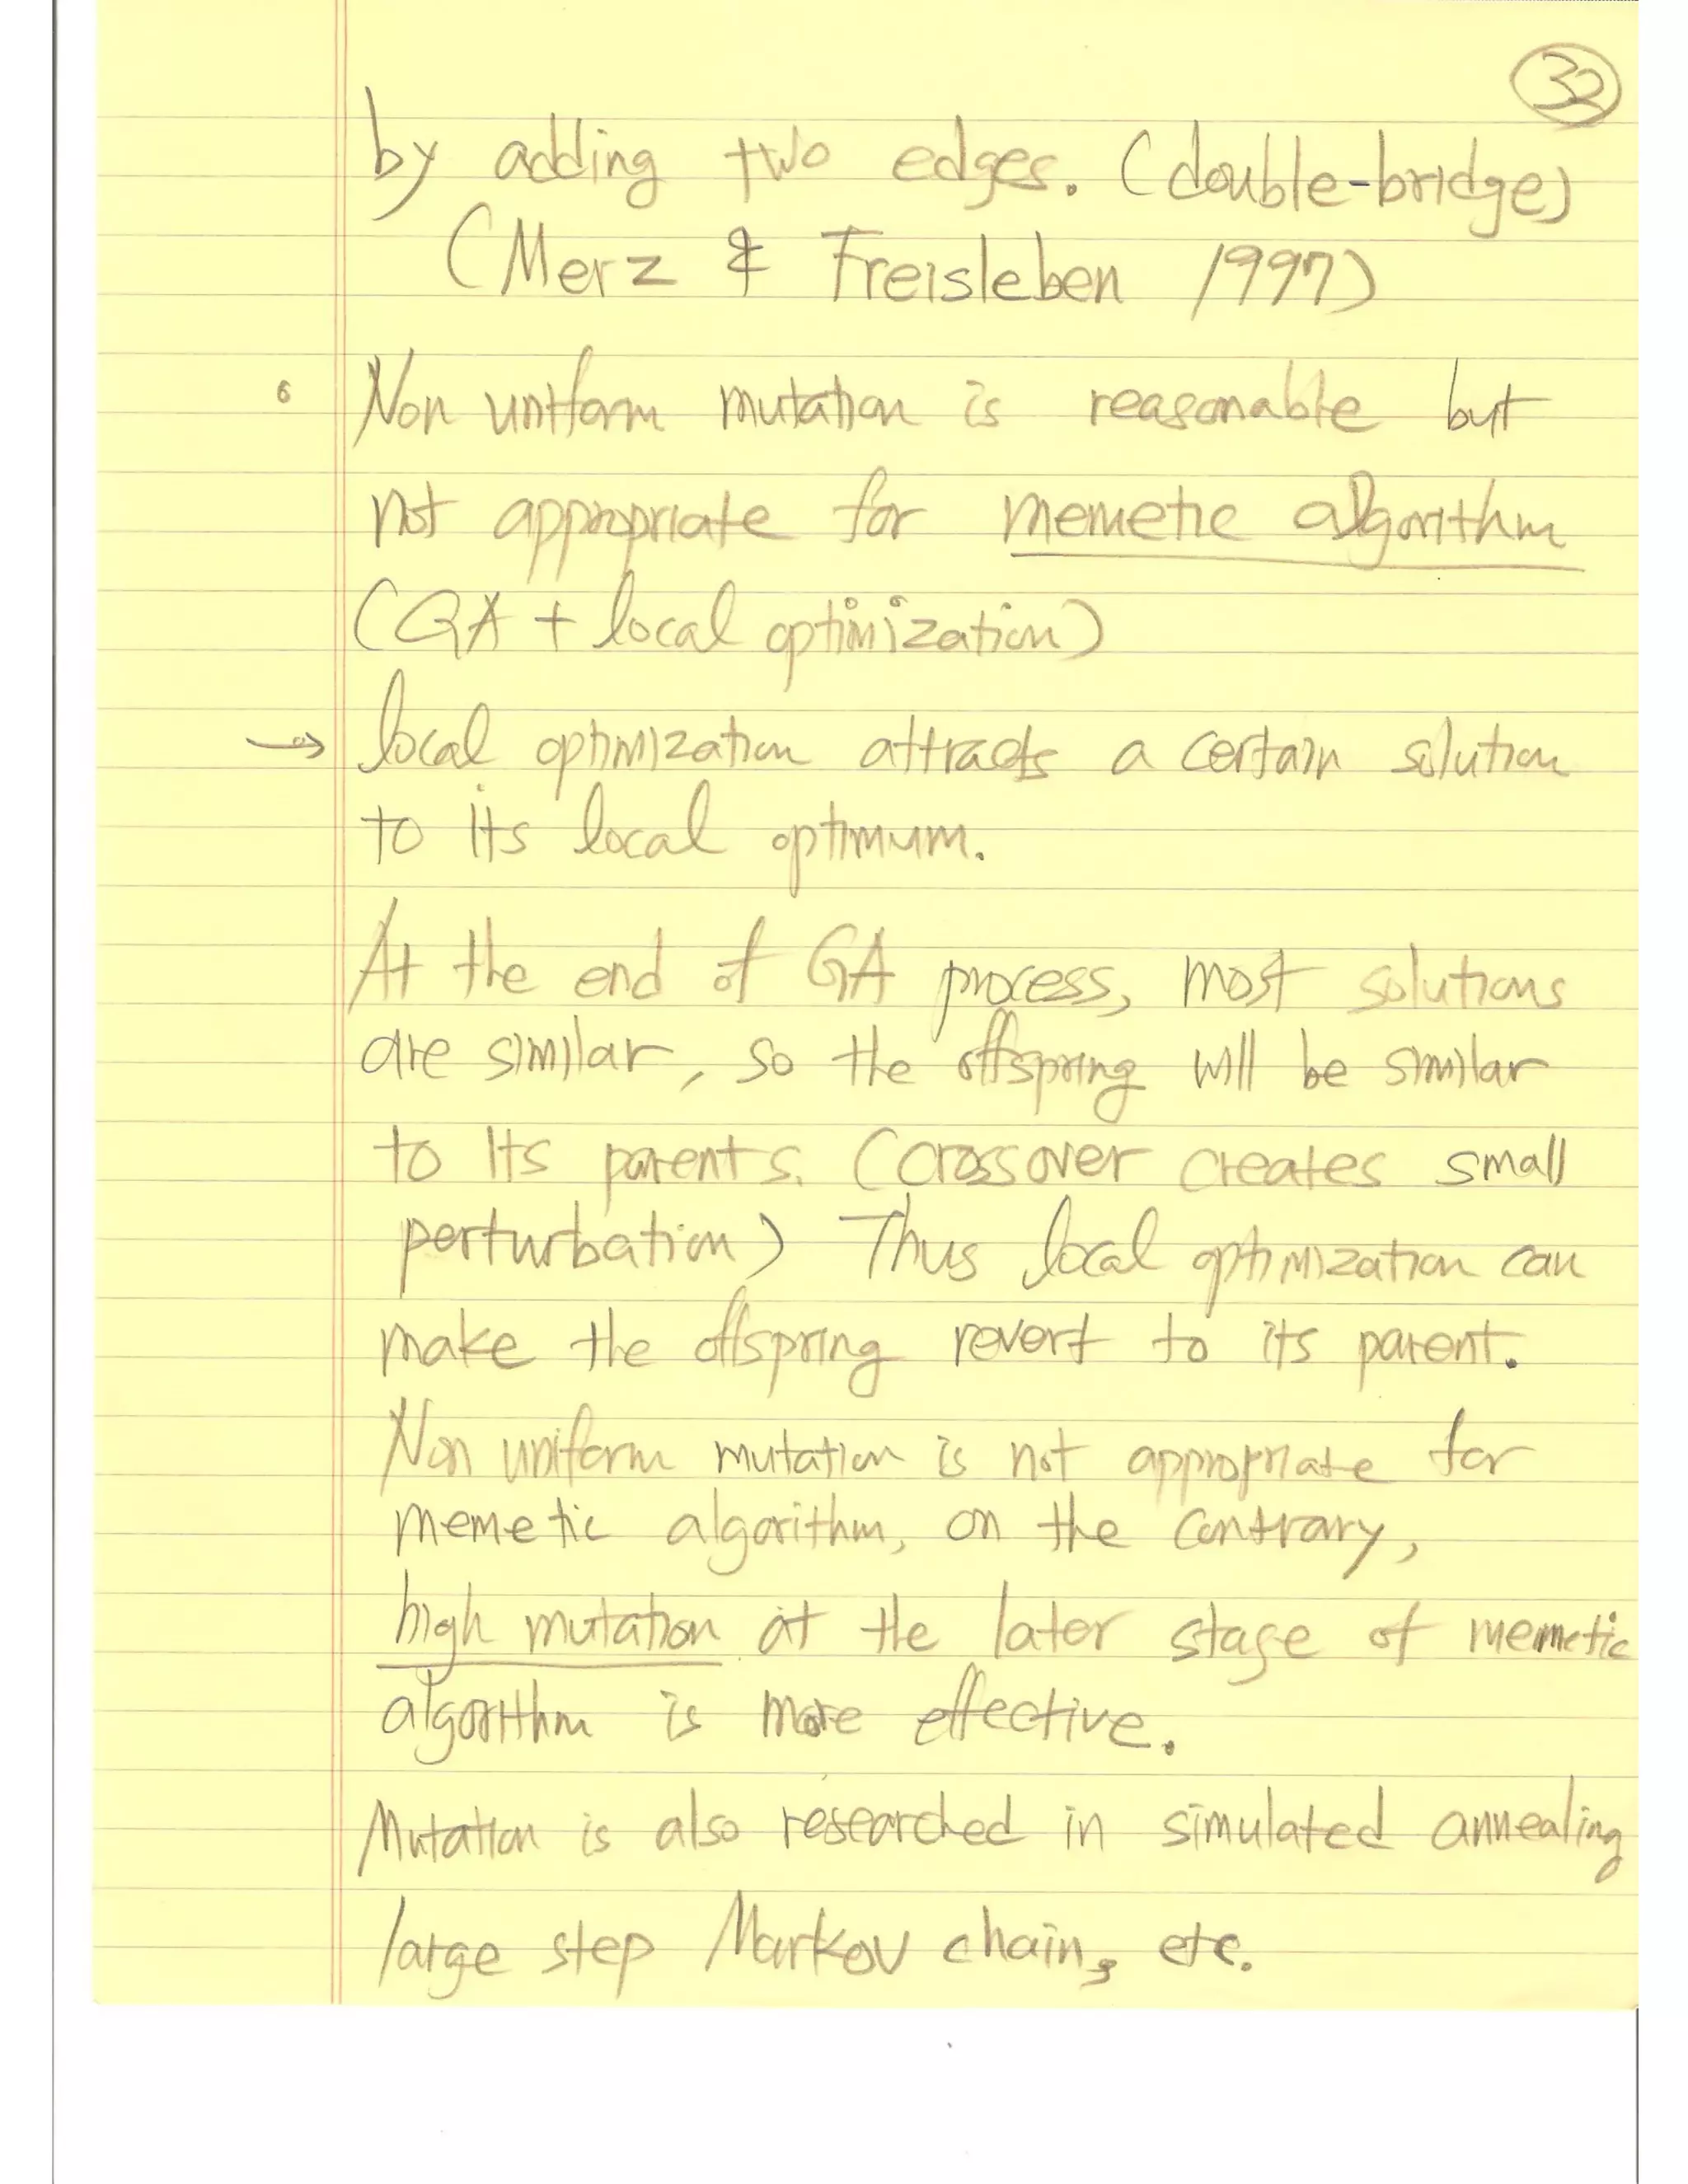 32
by adding two edges. (double-bridge)
(Merz & Freisleben 1997)
Non uniform mutation is reasonable but
not appropriate for memetic algorithm
(GA + local optimization)
→ local optimization attracts a certain solution
to its local optimum.
At the end of GA process, most solutions
are similar, so the offspring will be similar
to its parents. (crossover creates small
perturbation) Thus local optimization can
make the offspring revert to its parent.
Non uniform mutation is not appropriate for
memetic algorithm, on the contrary,
high mutation at the later stage of memetic
algorithm is more effective.
Mutation is also researched in simulated annealing
large step Markov chain, etc.